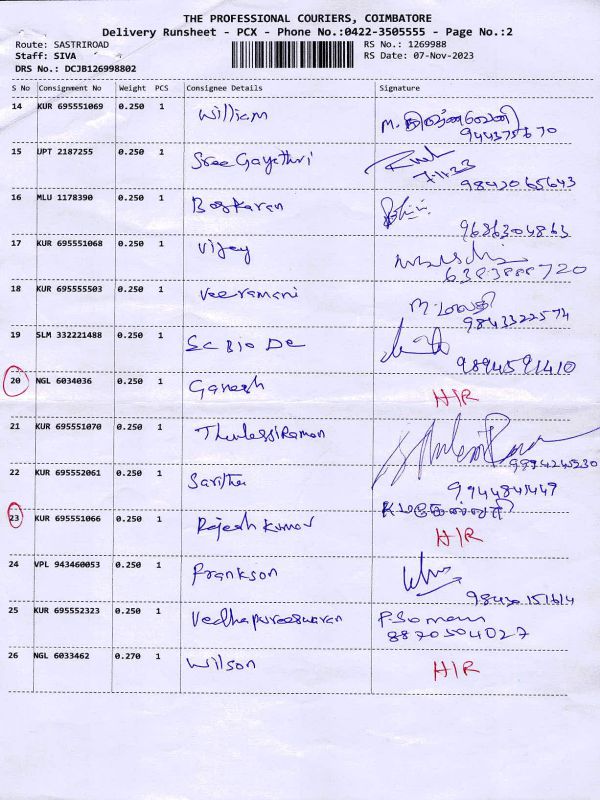 THE PROFESSIONAL COURIERS, COIMBATORE
Delivery Runsheet - PCX - Phone No.:0422-3505555 - Page No.:2
Route: SASTRIROAD RS No.: 1269988
Staff: SIVA RS Date: 07-Nov-2023
DRS No.: DCJB126998802
S No Consignment No Weight PCS Consignee Details Signature
14 KUR 695551069 0.250 1 William M.
15 UPT 2187255 0.250 1 Sree Gayathri 7.11.23
9842065643
16 MLU 1178390 0.250 1 Boskaran
9686304863
17 KUR 695551068 0.250 1 Vijay
6383888720
18 KUR 695555503 0.250 1 Veeramani M.
9843322574
19 SLM 332221488 0.250 1 SC Bio De
9894591410
20 NGL 6034036 0.250 1 Ganesh H/R
21 KUR 695551070 0.250 1 ThulessiRaman
9994245230
22 KUR 695552061 0.250 1 Saritha 9944841449
23 KUR 695551066 0.250 1 Rajesh Kumar H/R
24 VPL 943460053 0.250 1 Prankson
25 KUR 695552323 0.250 1 Vedhapureeswaran P. Somam
8870504027
26 NGL 6033462 0.270 1 Wilson H/R